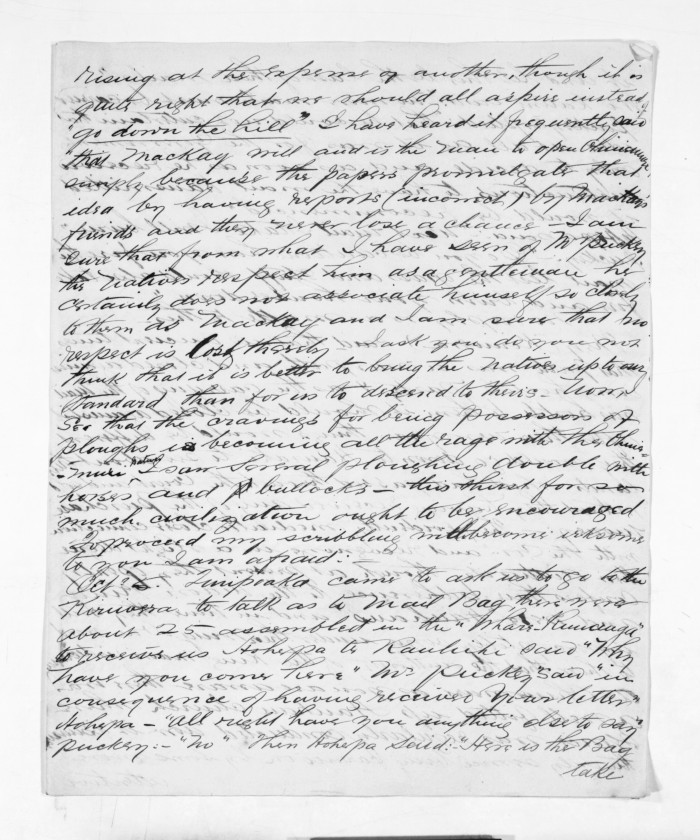 rising at the expense of another, though it is
quite right that we should all aspire instead
"go down the hill" I have heard it frequently said
that Mackay will and is the man to open Ohinemuri,
simply because the papers promulgate that
idea by having reports (incorrect) by Mackays
friends and they never lose a chance – I am
sure that from what I have seen of Mr Puckey,
the Natives respect him as a gentleman he
certainly does not associate himself so closely
to them as Mackay and I am sure that no
respect is lost thereby I ask you do you not
think that it is better to bring the Natives up to our
standard than for us to descend to theirs – Now I
see that the cravings for being possessors of
ploughs is becoming all the rage with the Ohine-
-muri natives I saw several ploughing double with
horses and bullocks – this thirst for so
much civilization ought to be encouraged
To proceed my scribbling will become irksome
to you I am afraid: –
Oct. came to ask us to go to the
to talk as to Mail Bag, there were
about 25 assembled in the "Whare Runanga"
to receive us Aohepa te Rauhihi said "Why
have you come here" Mr Puckey said "in
consequence of having received your letter"
Aohepa – "all right have you anything else to say"
Puckey: – "No" Then Aohepa said: – "Here is the Bag
take